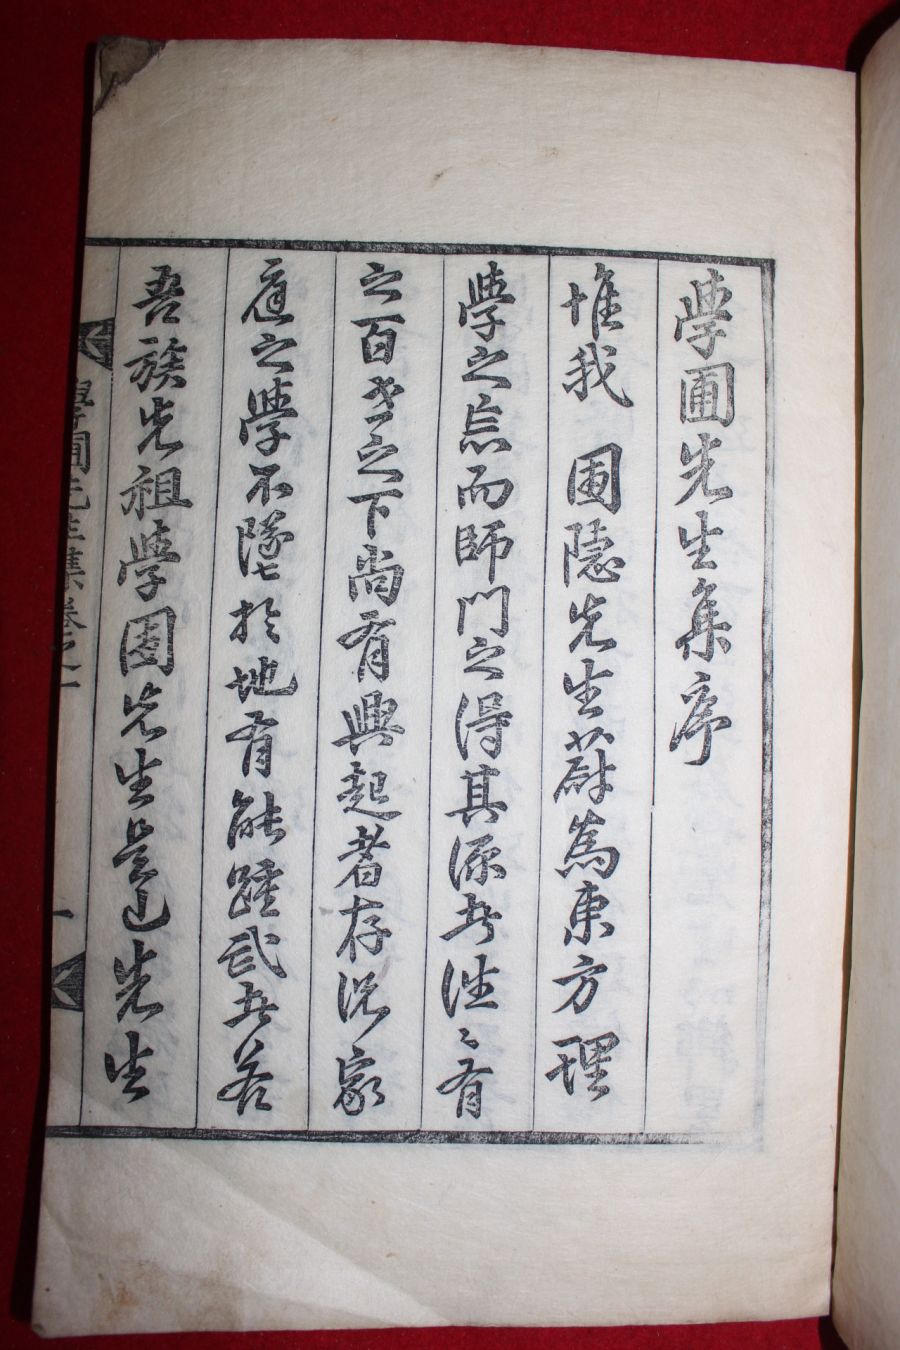 學圃先生集序
惟我 圃隱先生蔚爲東方理
學之宗而師門之得其源者往〻有
之百世之下尚有興起者存況家
庭之學不墜於地有能踵武者若
吾族先祖學圃先生是已先生
學圃先生集卷之一
一